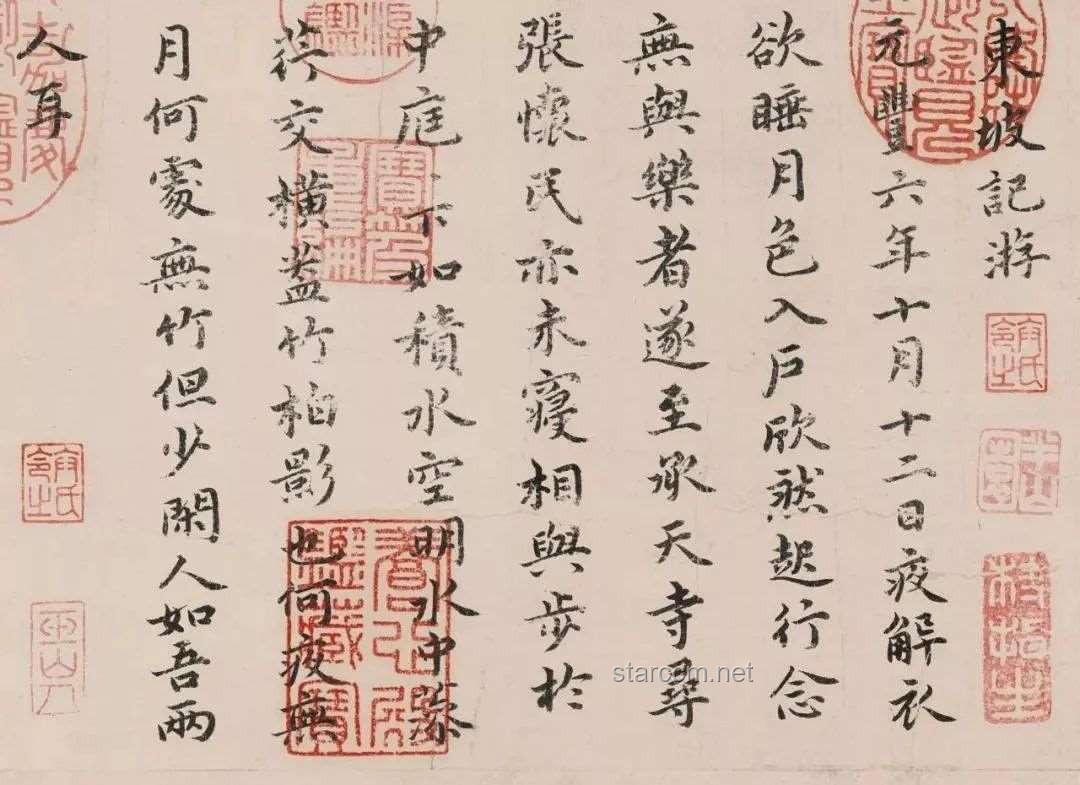 東坡記游
元豐六年十月十二日夜解衣
欲睡月色入戶欣然起行念
無與樂者遂至承天寺尋
張懷民亦未寢相與步於
中庭〻下如積水空明水中藻
荇交橫蓋竹柏影也何夜無
月何處無竹但少閑人如吾兩
人耳
starcom.net